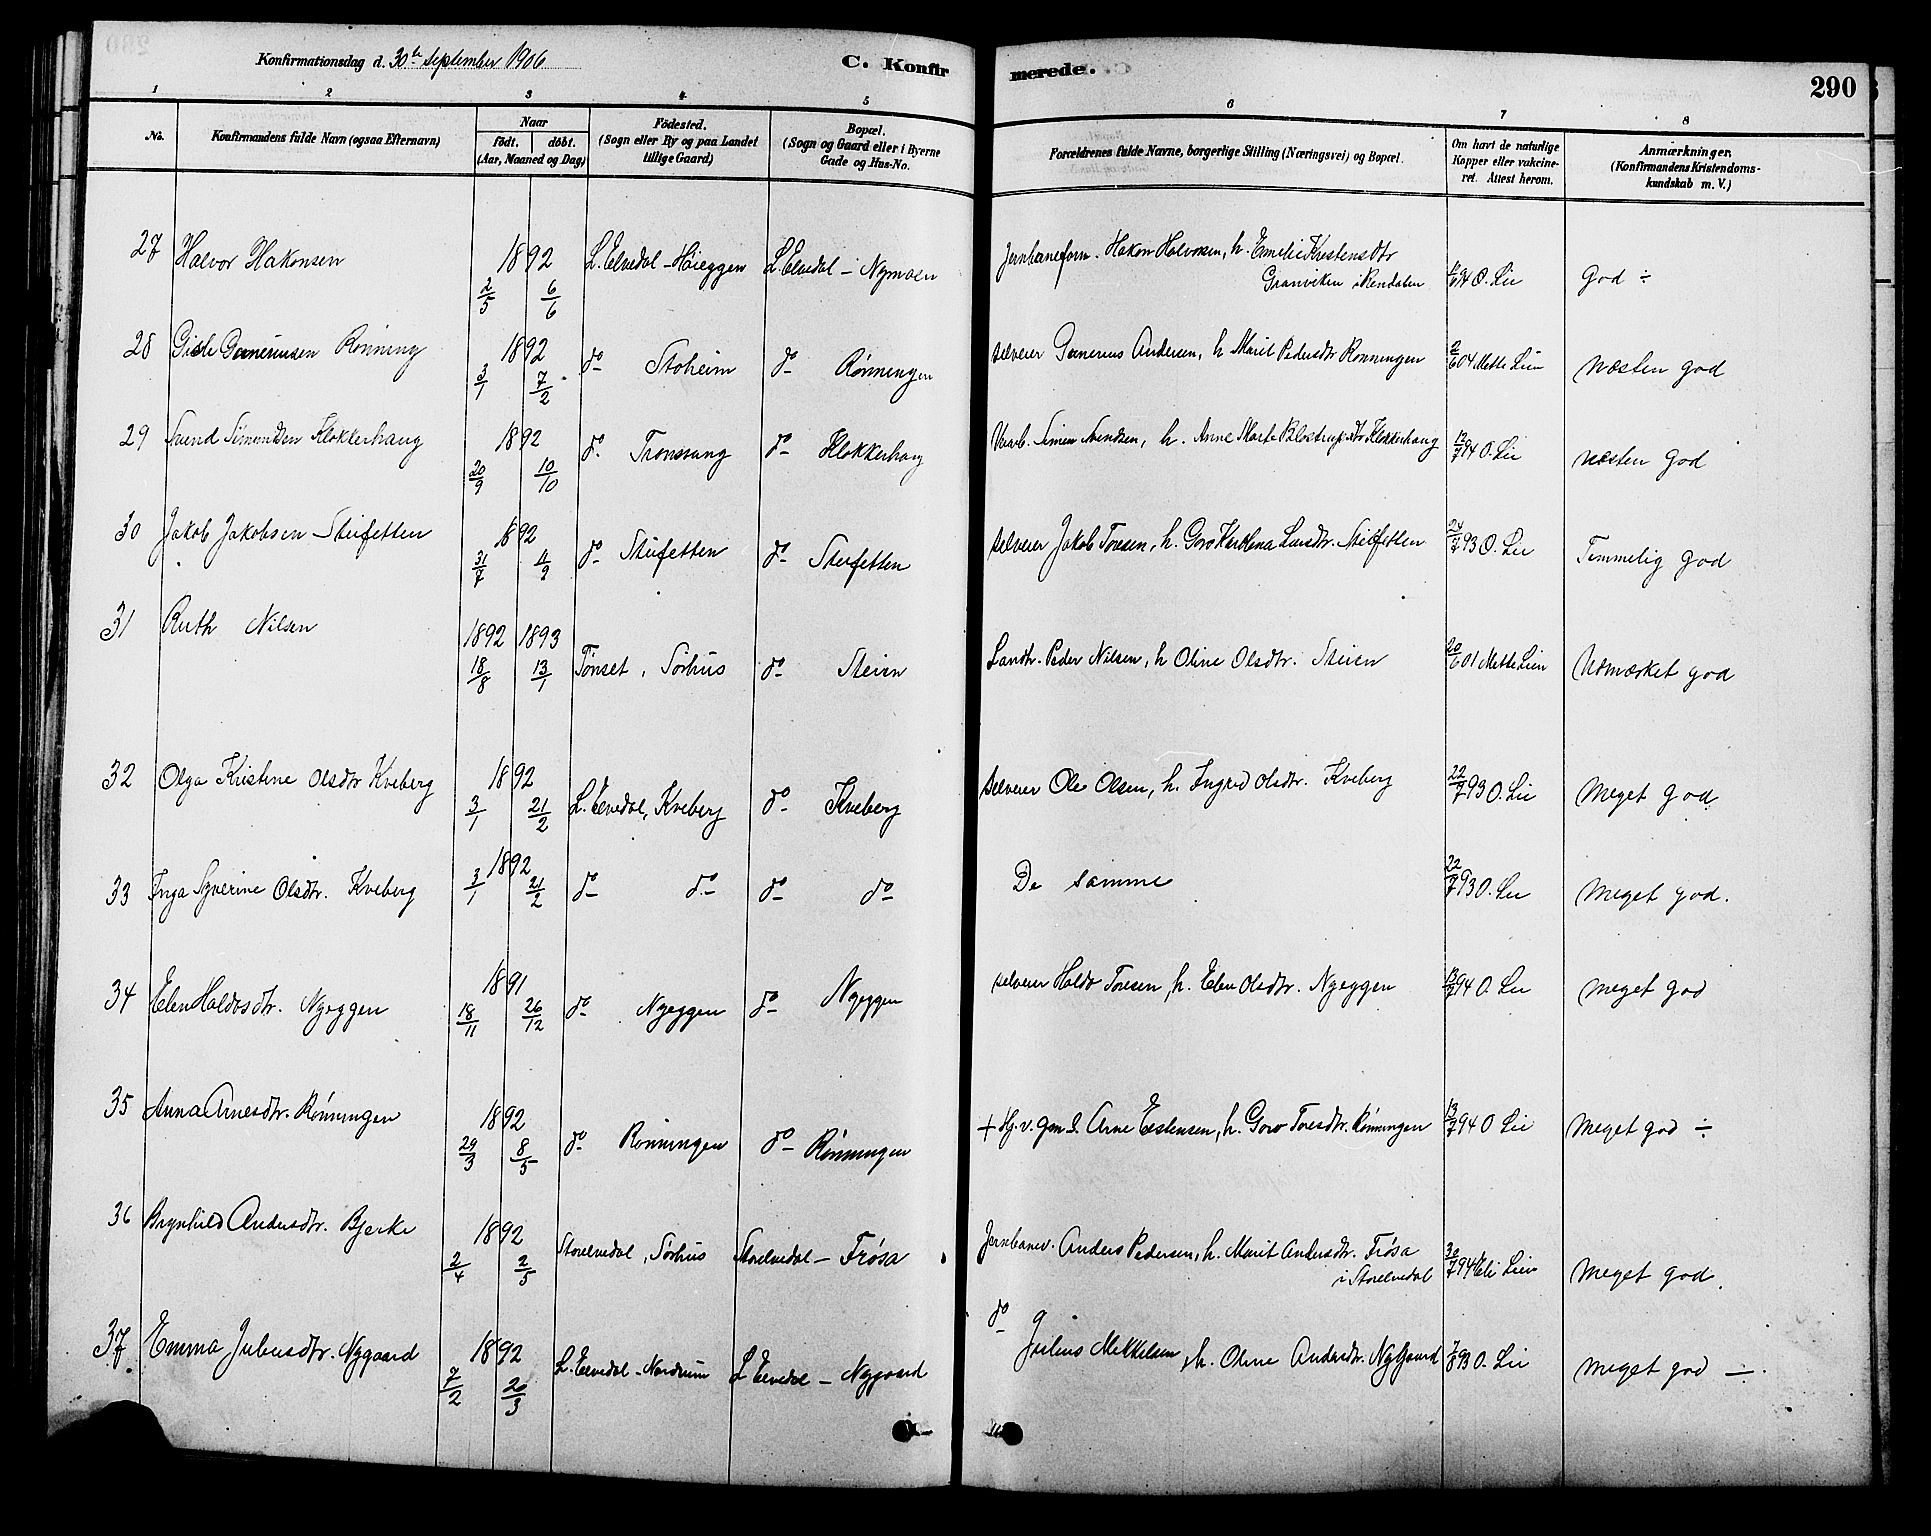 Konfirmationsdag d. 30te September 1906
C. Konfirmerede.
290
1 2 3 4 5 6 7 8
No.
Konfirmandens fulde Navn (ogsaa Efternavn)
Naar
födt. döbt.
(Aar, Maaned og Dag)
Födested.
(Sogn eller By og paa Landet
tillige Gaard)
Bopæl.
(Sogn og Gaard eller i Byerne
Gade og Hus-No.
Forældrenes fulde Navne, borgerlige Stilling (Næringsvei) og Bopæl.
Om havt de naturlige
Kopper eller vakcine-
ret. Attest herom.
Anmærkninger.
(Konfirmandens Kristendoms-
kundskab m. V.)
27 Halvor Hakonsen 1892 2/5 6/6 L. Elvedal - Høieggen L. Elvedal - Nymoen Jernbaneform. Hakon Halvorsen, h. Emelie Kristensdtr
Granviken i Rendalen 94 O. Lie God ÷
28 Gisle Gunneriusen Rönning 1892 3/1 7/2 do Stoheim do Rönningen Selveier Gunnerius Andersen, h Marit Pedersdtr Rönningen 2/6 04 Mette Lien næsten god
29 Svend Simensen Klokkerhaug 1892 20/9 10/10 do Tronsvang do Klokkerhaug Simen Svendsen, h. Anne Marte Klokkerhaug 13/7 94 O. Lie næsten god
30 Jakob Jakobsen Steifetten 1892 31/7 4/9 do Steifetten do Steifetten Selveier Jakob Toresen, h. Goro Larsdtr. Steifetten 24/7 93 O. Lie Temmelig god
31 Ruth Nilsen 1892 18/8 1893 13/1 Tönset, Sörhus do Steien Landh. Peder Nilsen, h Oline Olsdtr. Steien 20/6 01 Mette Lien Udmærket god
32 Olga Kristine Olsdtr Kveberg 1892 3/1 21/2 L. Elvedal, Kveberg do Kveberg Selveier Ole Olsen, h. Ingrid Olsdtr. Kveberg 22/7 93 O. Lie Meget god
33 Inga Syverine Olsdtr. Kveberg 1892 3/1 21/2 do do do do De samme 22/7 93 O. Lie Meget god.
34 Elen Haldosdtr. Nyeggen 1891 18/11 26/12 do Nyeggen do Nyeggen Selveier Haldo Toresen, h. Elen Olsdtr. Nyeggen 13/7 94 O. Lie Meget god
35 Anna Arnesdtr. Rönningen 1892 29/3 8/5 do Rönningen do Rönningen + Arne Estensen, h. Goro Toresdtr. Rönningen 13/7 94 O Lie Meget god ÷
36 Brynhild Andersdtr. Bjerke 1892 2/4 2/5 Storelvedal, Sörhus Storelvedal - Frösa Jernbanev. Anders Pedersen, h. Marit Andersdtr. Frösa
i Storelvedal 30/7 94 Eli Lien Meget god.
37 Emma Juliusdtr. Nygaard 1892 7/2 20/3 L. Elvedal - Nordrum L Elvedal - Nygaard do Julius Mikkelsen, h. Oline Andersdtr. Nygaard 7/8 93 O. Lie Meget god ÷